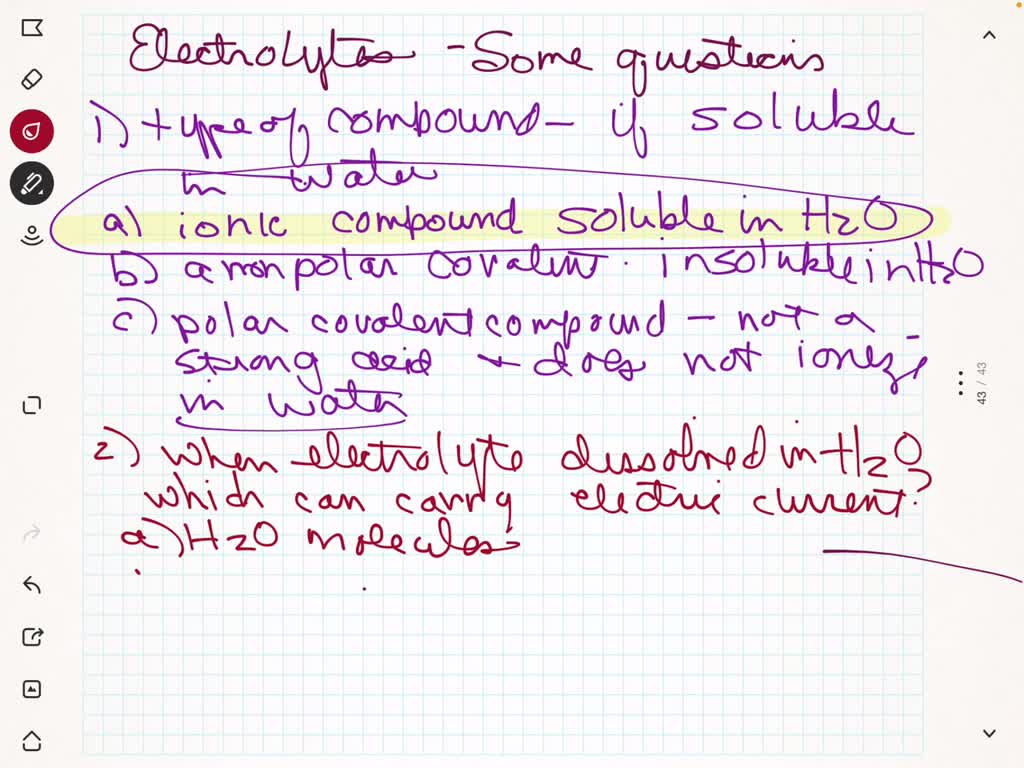 Electrolytes - Some questions
1.) type of compound - if soluble
in water
a) ionic compound soluble in H2O
b) a nonpolar covalent. insoluble in H2O
c) polar covalent compound - not a
strong acid + does not ionize
in water
2.) when electrolyte dissolved in H2O
which can carry electric current?
a) H2O molecules
43 / 43